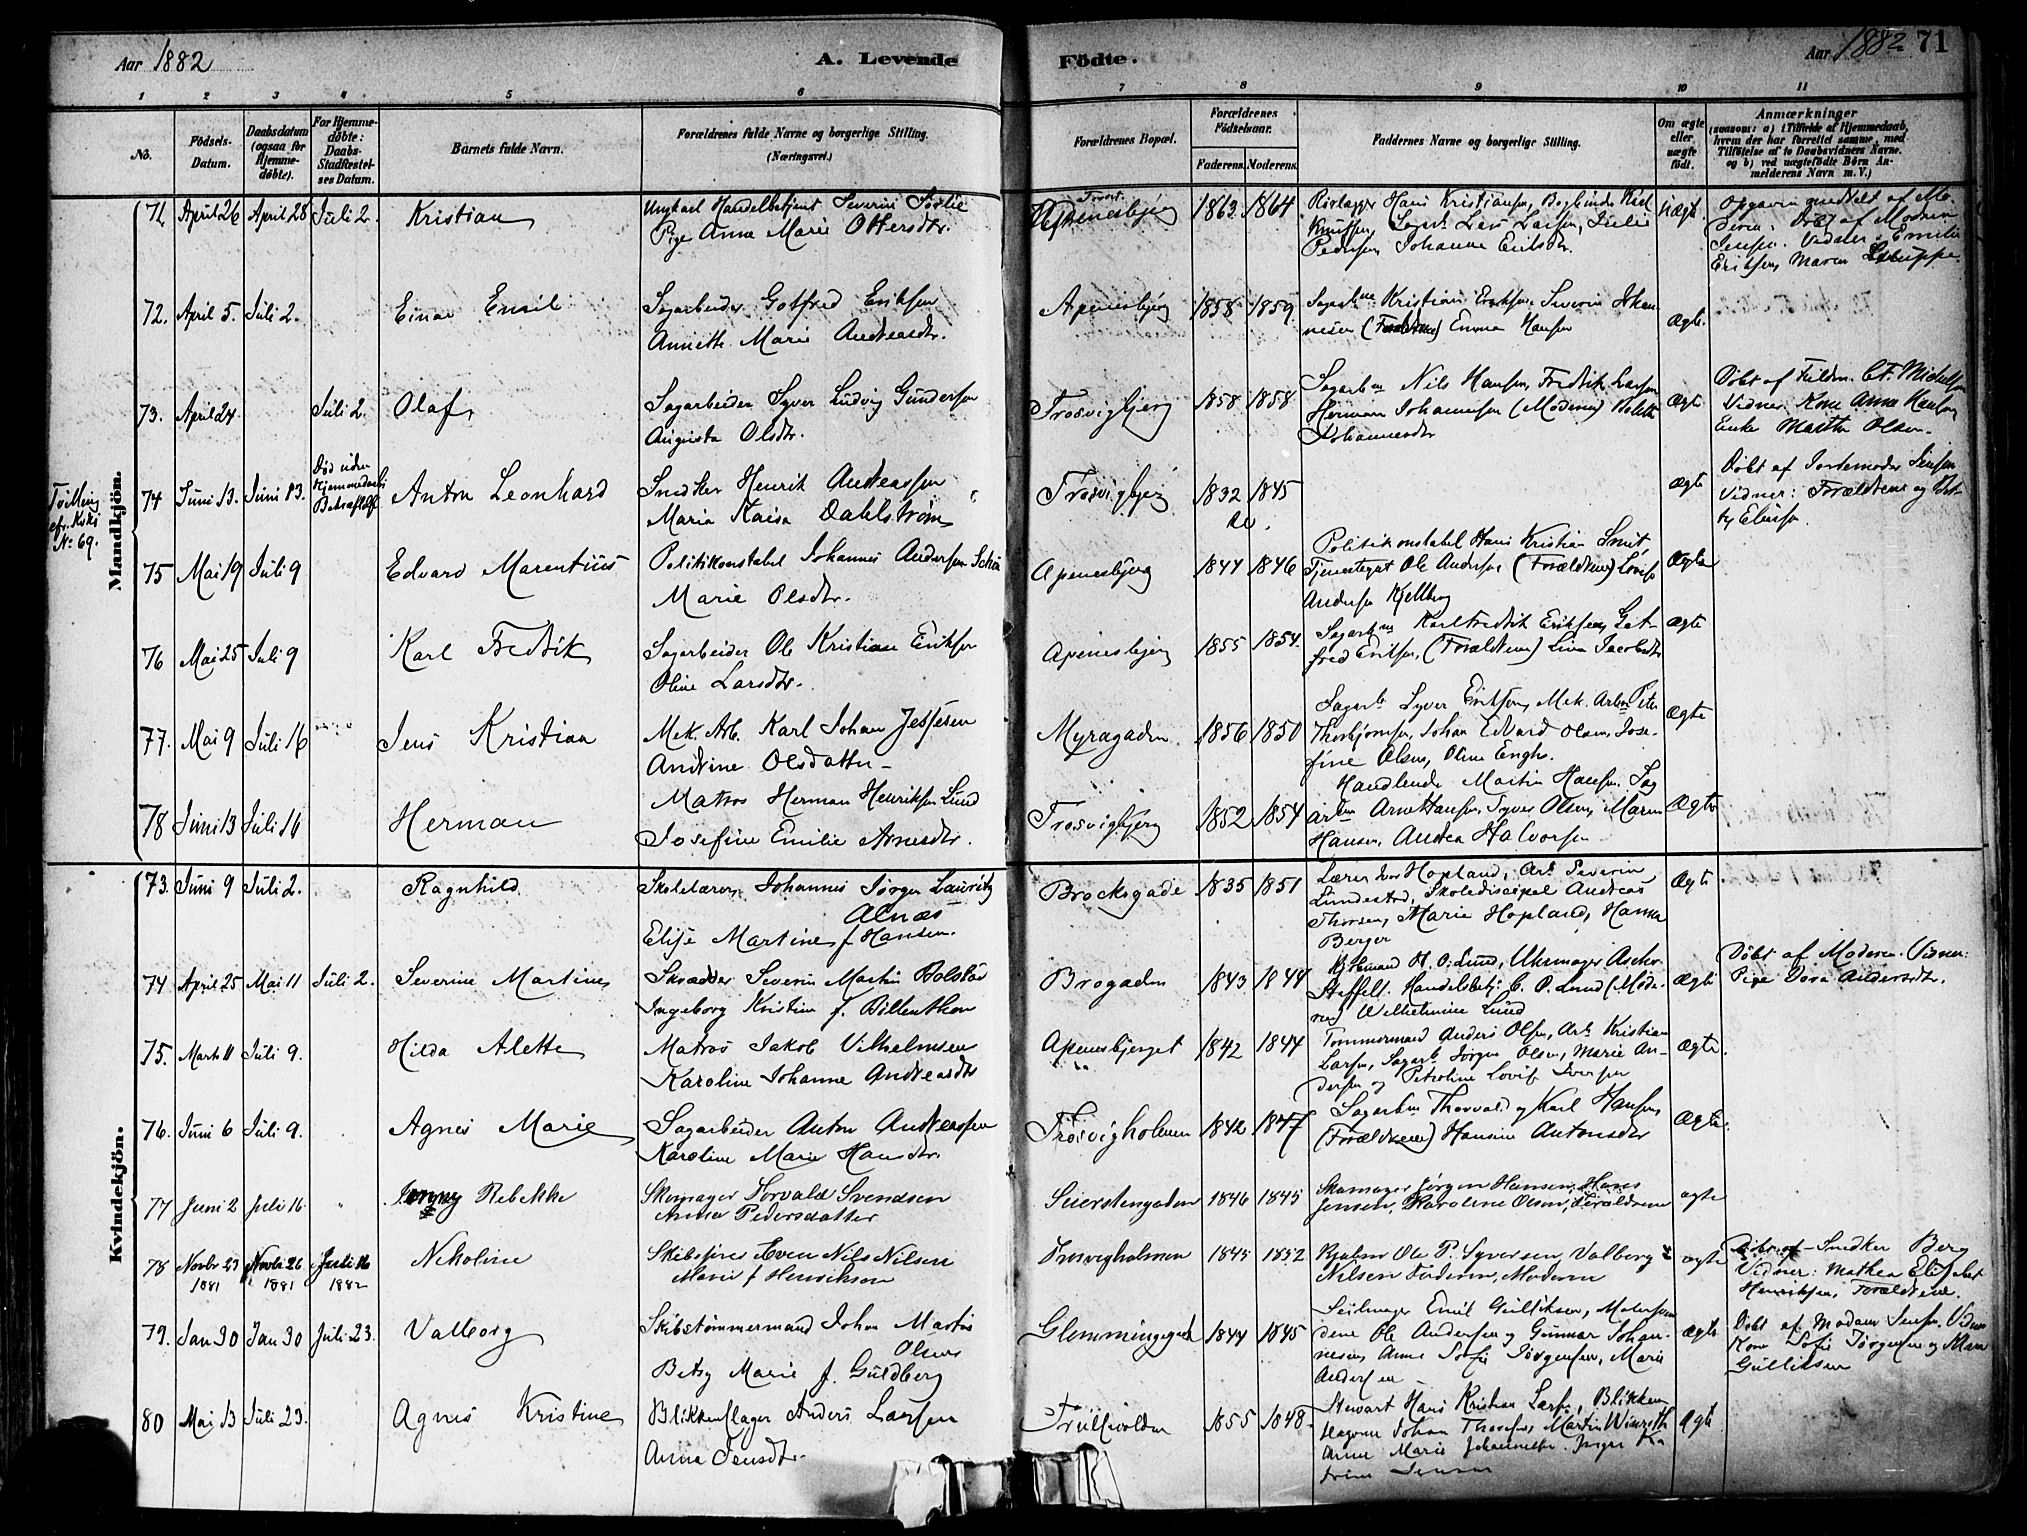 Aar 1882
A. Levende Födte.
Aar 1882 71
1 2 3 4 5 6 7 8 9 10 11
No.
Födsels-Datum.
Daabsdatum (ogsaa for Hjemme-döbte).
For Hjemme-döbte: Daabs-Stadfæstel-ses Datum.
Barnets fulde Navn.
Forældrenes fulde Navne og borgerlige Stilling. (Næringsvei.)
Forældrenes Bopæl.
Forældrenes Födselsaar.
Faderens. Moderens.
Faddernes Navne og borgerlige Stilling.
Om ægte eller uægte födt.
Anmærkninger
(saasom: a) i Tilfælde af Hjemmedaab, hvem der har forrettet samme, med Tilföielse af to Daabsvidners Navne. og b) ved uægtefödte Börn An-melderens Navn m. V.)
Mandkjön.
71 April 26 April 28 Juli 2. Kristian
Ungkarl Handelsbetjent Severin
Pige Anna Marie Ottersdtr.
Apenesbjerg 1863. 1864
Hans Kristiansen,
Lars Larsen, Julie
Pedersen Johanne Eriksdtr.
Uægte
af Mo-
deren. Døbt af Madam
Jensen. Vidner: Emilie
Eriksen, Maren
72. April 5. Juli 2. Einar Emil
Sagarbeider Gotfred Eriksen
Annette Marie Andreasdtr.
Apenesbjerg 1858 1859.
Kristian Eriksen, Severin Johan-
nesen (Forældrene) Emma Hansen
Ægte.
73. April 24 Juli 2. Olaf
Sagarbeider Syver Ludvig Gundersen
Augusta Olsdtr.
Trosvigbjerg 1858 1858
Nils Hansen, Fredrik Larsen
Herman Johannesen (Moderen)
Johannesdtr
Ægte
Døbt af
Vidner: Kone Anna
Enke Marthe Olsen.
Tvilling
cfr. Kvkj
No 69.
74 Juni 13. Juni 13.
Død uden
Anton Leonhard
Snedker Henrik Andreassen
Maria Kaisa Dahlstrøm
Trosvigbjerg 1832 1845
Ægte
Døbt af Jordemoder Jensen
Vidner: Forældrene og
75 Mai 19 Juli 9 Edvard Marentius
Politikonstabel Johannes Andersen
Marie Olsdtr.
Apenesbjerg 1844 1846
Politikonstabel Hans Kristian
Ole Andersen (Forældrene) Lovise
Andersen Kjellberg
Ægte
76 Mai 25 Juli 9 Karl Fredrik
Sagarbeider Ole Kristian Eriksen
Oline Larsdtr.
Apenesbjerg 1855 1854.
Karl Fredrik Eriksen, Got-
fred Eriksen, (Forældrene) Lina Jacobsdtr
Ægte
77. Mai 9 Juli 16 Jens Kristian
Mek. Arb. Karl Johan Jespersen
Andrine Olsdatter
Myragaden 1856 1850
Sagarb. Syver Eriksen, Mek. Peter
Thorbjørnsen, Johan Edvard Olsen, Jose-
fine Olsen, Oline Engh.
Ægte
78 Juni 13 Juli 16 Herman
Matros Herman Henriksen Lund
Josefine Emilie Arnesdtr.
Trosvigbjerg 1852 1854
Handlende Martin Hansen, Sag
Arne Hansen, Syver Olsen, Maren
Hansen, Andrea Halvorsen
Ægte
Kvindekjön.
73. Juni 9 Juli 2. Ragnhild
Skolelærer Johannes Jørgen Lauritz
Alnæs
Elise Martine f Hansen.
Brocksgade 1835 1851
Lærer Hopland, Arb. Severin
Lundestad, Skolediscipel Andreas
Thorsen, Marie Hopland, Hanna
Berger
Ægte
74 April 25 Mai 11 Juli 2. Severine Martine
Skrædder Severin Martin Bolstad
Ingeborg Kristine f.
Brogaden 1843 1844
O. Lund, Uhrmager
Handelsbetj. C. P. Lund (Mode-
ren) Wilhelmine Lund
Ægte
Døbt af Moderen. Vidner:
Pige Dora Andersdtr.
75. Marts 11 Juli 9. Hilda Alette
Matros Jakob Vilhelmsen
Karoline Johanne Andreasdtr
Apenesbjerget 1842 1844
Tømmermand Anders Olsen, Arb. Kristian
Larsen, Sagarb. Jørgen Olsen, Marie An-
dersen og Petroline Lovise Iversen
Ægte.
76. Juni 6 Juli 9. Agnes Marie
Sagarbeider Anton Andreassen
Karoline Marie Hansdtr.
Trosvigholmen 1842 1847
Thorvald og Karl Hansen,
(Forældrene) Hansine Antonsdtr
Ægte.
77 Juni 2 Juli 16 Jenny Rebekke
Skomager Torvald Svendsen
Anna Pedersdatter
Seierstengaden 1846 1845
Skomager Jørgen Hansen, Hans
Jensen, Karoline Olsen, Forældrene
ægte
78 Novbr 23 1881 Novbr 26 1881 Juli 16 1882 Nikoline
Skibsfører Even Nils Nilsen
Marie f Henriksen
Trosvigholmen 1845 1852
Ole P. Syversen, Valborg
Nilsen Faderen, Moderen
ægte
Døbt af Snedker Berg
Vidner: Mathea Elisabet
Henriksen, Forældrene.
79. Jan 30 Jan 30 Juli 23. Valborg
Skibstømmermand Johan Martin
Olsen
Betsy Marie f. Guldberg
Glemmingegad 1844 1845
Seilmager Emil Gulliksen,
Ole Andersen og Gunnar Johan-
nesen, Anne Sofie Jørgensen, Marie
Andersen
Ægte
Døbt af Madam Jensen. Vidner
Kone Sofie Jørgensen og
Gulliksen
80 Mai 13 Juli 23. Agnes Kristine
Blikkenslager Anders Larsen
Anna Jensdtr.
1855 1848.
Stewart Hans Kristian Larsen, Blikken-
Johan Martin
Anne Marie Johannesen. Inger Ka
trine Jensen
Ægte